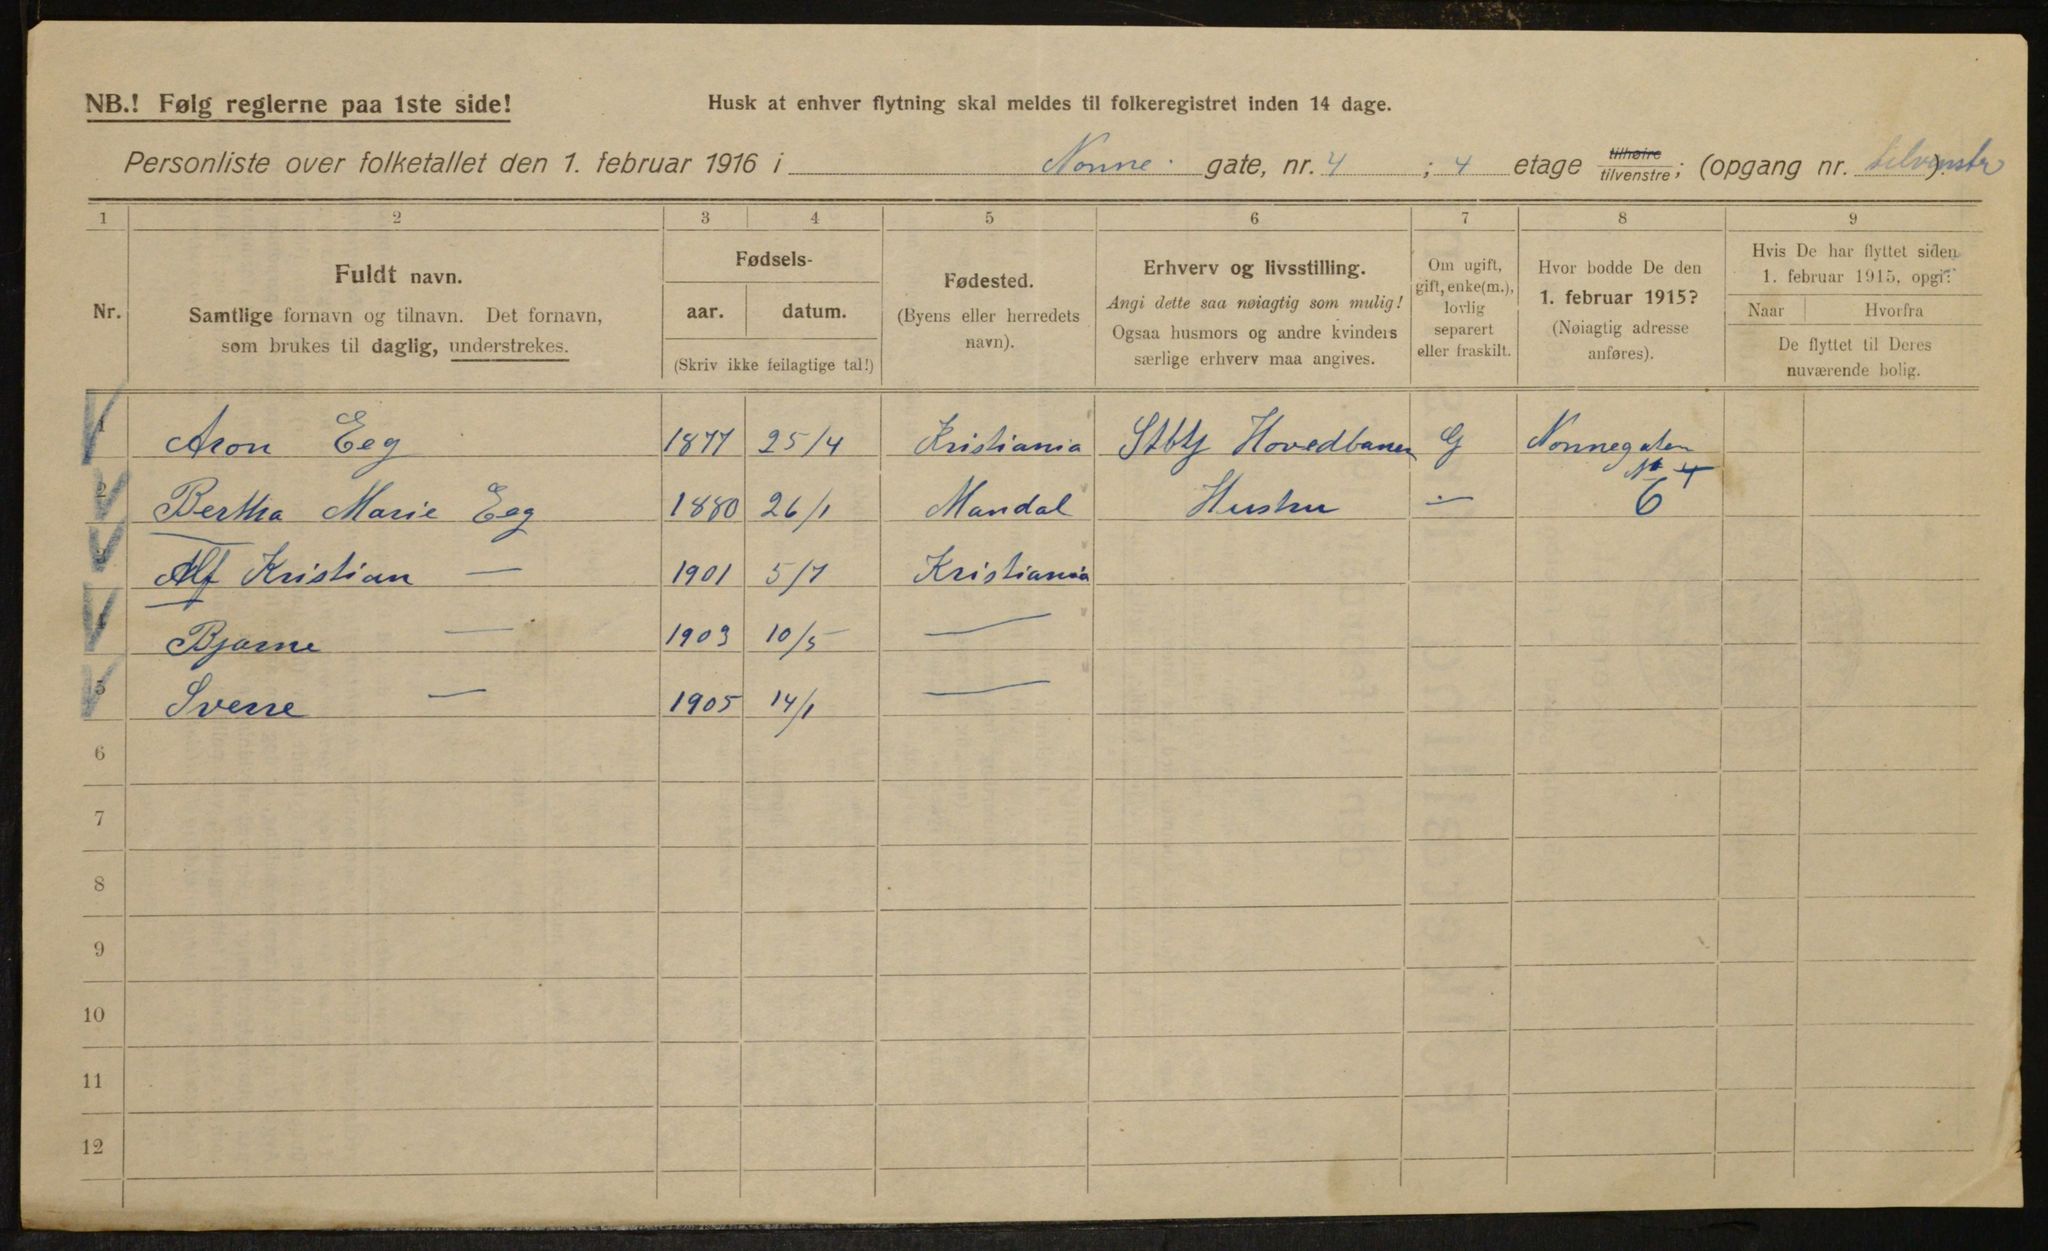 NB.! Følg reglerne paa 1ste side!
Husk at enhver flytning skal meldes til folkeregistret inden 14 dage.
Personliste over folketallet den 1. februar 1916 i Nonne gate, nr. 4 ; 4 etage tilhøire tilvenstre; (opgang nr. tilvenstre).
1 2 3 4 5 6 7 8 9
Nr.
Fuldt navn.
Samtlige fornavn og tilnavn. Det fornavn,
som brukes til daglig, understrekes.
Fødsels-
aar. datum.
(Skriv ikke feilagtige tal!)
Fødested.
(Byens eller herredets
navn).
Erhverv og livsstilling.
Angi dette saa nøiagtig som mulig!
Ogsaa husmors og andre kvinders
særlige erhverv maa angives.
Om ugift,
gift, enke(m.),
lovlig
separert
eller fraskilt.
Hvor bodde De den
1. februar 1915?
(Nøiagtig adresse
anføres).
Hvis De har flyttet siden
1. februar 1915, opgi:
Naar Hvorfra
De flyttet til Deres
nuværende bolig.
1 Aron Eeg 1877 25/4 Kristiania Stbtj Hovedbanen G Nonnegaten
No 4
2 Bertha Marie Eeg 1880 26/1 Mandal Hustru — 6
3 Alf Kristian — 1901 5/7 Kristiania
4 Bjarne — 1903 10/5 —
5 Sverre — 1905 14/1 —
6
7
8
9
10
11
12